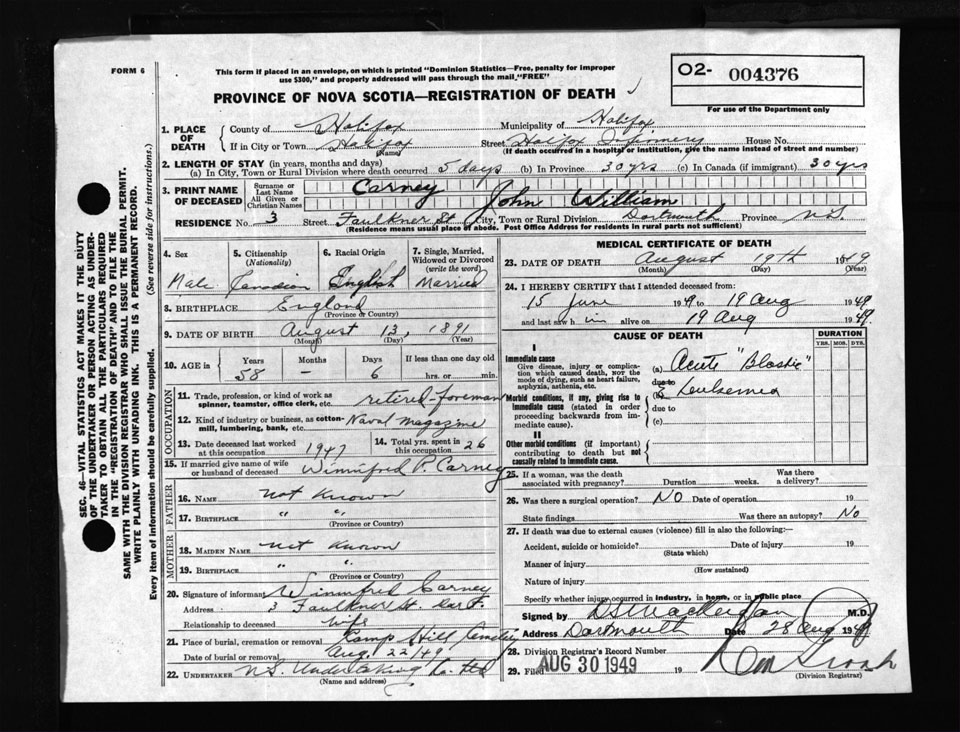 FORM 6
This form if placed in an envelope, on which is printed "Dominion Statistics—Free, penalty for improper
use $300," and properly addressed will pass through the mail, "FREE"
O2- 004376
For use of the Department only
PROVINCE OF NOVA SCOTIA—REGISTRATION OF DEATH
SEC. 46—VITAL STATISTICS ACT MAKES IT THE DUTY
OF THE UNDERTAKER OR PERSON ACTING AS UNDER-
TAKER TO OBTAIN ALL THE PARTICULARS REQUIRED
IN THE "REGISTRATION OF DEATH" AND TO FILE THE
SAME WITH THE DIVISION REGISTRAR WHO SHALL ISSUE THE BURIAL PERMIT.
WRITE PLAINLY WITH UNFADING INK. THIS IS A PERMANENT RECORD.
Every item of information should be carefully supplied. (See reverse side for instructions.)
1. PLACE OF DEATH
County of Halifax Municipality of Halifax
If in City or Town Halifax Street Halifax Infirmery House No.
(Name) (If death occurred in a hospital or institution, give the name instead of street and number)
2. LENGTH OF STAY (in years, months and days)
(a) In City, Town or Rural Division where death occurred 5 days (b) In Province 30 yrs (c) In Canada (if immigrant) 30 yrs
3. PRINT NAME OF DECEASED
Surname or Last Name Carney
All Given or Christian Names John William
RESIDENCE No. 3 Street Faulkner St City, Town or Rural Division Dartmouth Province N.S.
(Residence means usual place of abode. Post Office Address for residents in rural parts not sufficient)
4. Sex Male
5. Citizenship (Nationality) Canadian
6. Racial Origin English
7. Single, Married, Widowed or Divorced (write the word) Married
8. BIRTHPLACE England
(Province or Country)
9. DATE OF BIRTH August 13, 1891
(Month) (Day) (Year)
10. AGE in Years Months Days If less than one day old
58 – 6 hrs. or min.
OCCUPATION
11. Trade, profession, or kind of work as spinner, teamster, office clerk, etc. retired-foreman
12. Kind of industry or business, as cotton-mill, lumbering, bank, etc. Naval magazine
13. Date deceased last worked at this occupation 1947
14. Total yrs. spent in 26
15. If married give name of wife or husband of deceased Winnifred P. Carney
FATHER
16. NAME not known
17. BIRTHPLACE " "
(Province or Country)
MOTHER
18. MAIDEN NAME not known
19. BIRTHPLACE " "
(Province or Country)
20. Signature of informant Winnifred Carney
Address 3 Faulkner St. Dart.
Relationship to deceased wife
21. Place of burial, cremation or removal Camp Hill Cemetery
Date of burial or removal Aug 22/49
22. UNDERTAKER N.S. Undertaking Co. Ltd
(Name and address)
MEDICAL CERTIFICATE OF DEATH
23. DATE OF DEATH August 19th 1949
(Month) (Day) (Year)
24. I HEREBY CERTIFY that I attended deceased from:
15 June 1949 to 19 Aug 1949
and last saw him alive on 19 Aug 1949.
CAUSE OF DEATH
DURATION
YRS. MOS. DYS.
I
Immediate cause
Give disease, injury or complication which caused death, NOT the mode of dying, such as heart failure, asphyxia, asthenia, etc.
(a) Acute "Blastic"
due to
(b) Leukaemia
Morbid conditions, if any, giving rise to immediate cause (stated in order proceeding backwards from immediate cause).
due to
(c)
II
Other morbid conditions (if important) contributing to death but not causally related to immediate cause.
25. If a woman, was the death associated with pregnancy? Duration weeks. Was there a delivery?
26. Was there a surgical operation? NO Date of operation 19
State findings Was there an autopsy? No
27. If death was due to external causes (violence) fill in also the following:—
Accident, suicide or homicide? Date of injury 19
(State which)
Manner of injury
(How sustained)
Nature of injury
Specify whether injury occurred in industry, in home, or in public place
Signed by M.D.
Address Dartmouth Date 28 Aug 1949
28. Division Registrar's Record Number
29. Filed AUG 30 1949 19
(Division Registrar)